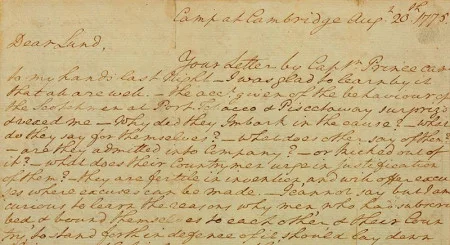 Camp at Cambridge Augt 20th 1775.
Dear Lund,
Your Letter by Captn Prince came
to my hands last Night—I was glad to learn by it
that all are well.—the acct given of the behaviour of
the Scotchmen at Port Tobacco & Piscataway surprizd
& vexed me—Why did they Imbark in the cause?—what
do they say for themselves?—what does other say of them?
—are they admitted into Company?—or kicked out of
it?—what does their Countrymen urge in justification
of them?—they are fertile in invention, and will offer excu
ses where excuses can be made.—I cannot say but I am
curious to learn the reasons why men, who had subscri
bed, & bound themselves to each other, & their Coun
try, to stand forth in defence of it, should lay down